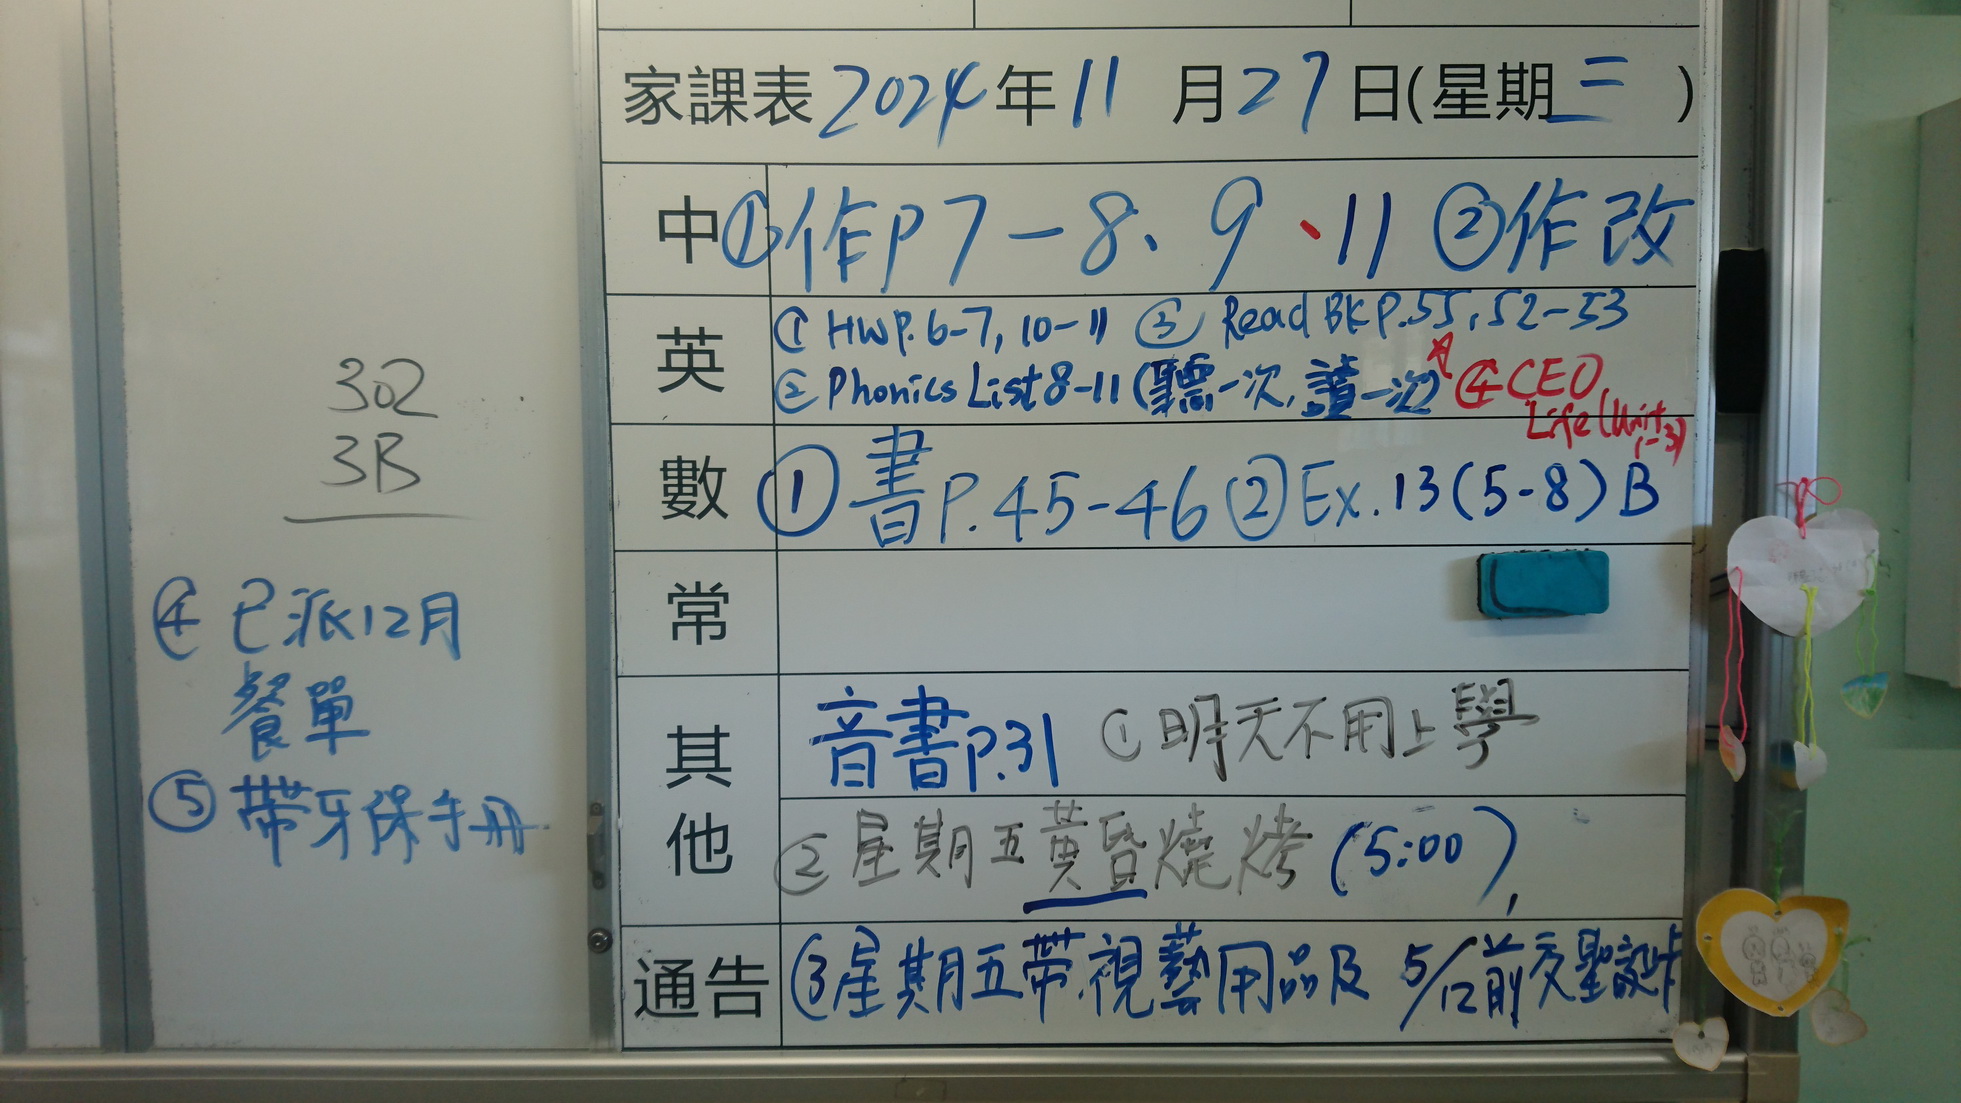 302
3B
④ 已派12月
餐單
⑤ 帶牙保手冊
家課表 2024 年 11 月 27 日(星期 三 )
中 ① 作P7-8、9、11 ② 作改
英 ① HW P.6-7, 10-11 ③ Read BK P.55, 52-53
② Phonics List 8-11 (聽一次, 讀一次) ④ CEO
Life (Unit
1-3)
數 ① 書P.45-46 ② Ex.13(5-8)B
常
其他 音書P.31 ① 明天不用上學
② 星期五黃昏燒烤 (5:00)
通告 ③ 星期五帶視藝用品及 5/12前交聖誕卡